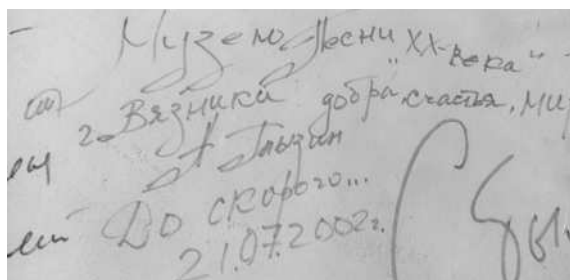 Музею Песни "XX-века"
г. Вязники добра, счастья, ми
А Глызин
До скорого...
21.07.2002г.